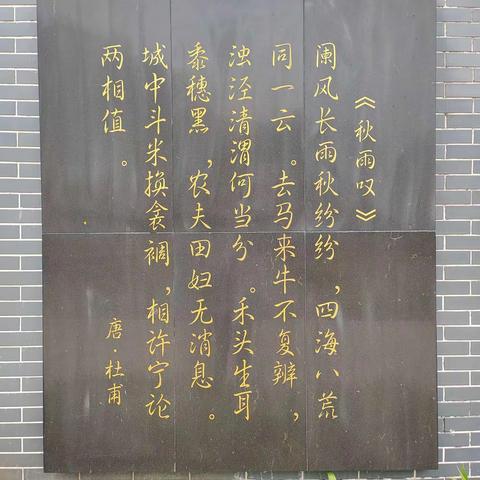 《秋雨叹》
阑风长雨秋纷纷，四海八荒
同一云。去马来牛不复辨，
浊泾清渭何当分。禾头生耳
黍穗黑，农夫田妇无消息。
城中斗米换衾裯，相许宁论
两相值。
唐·杜甫